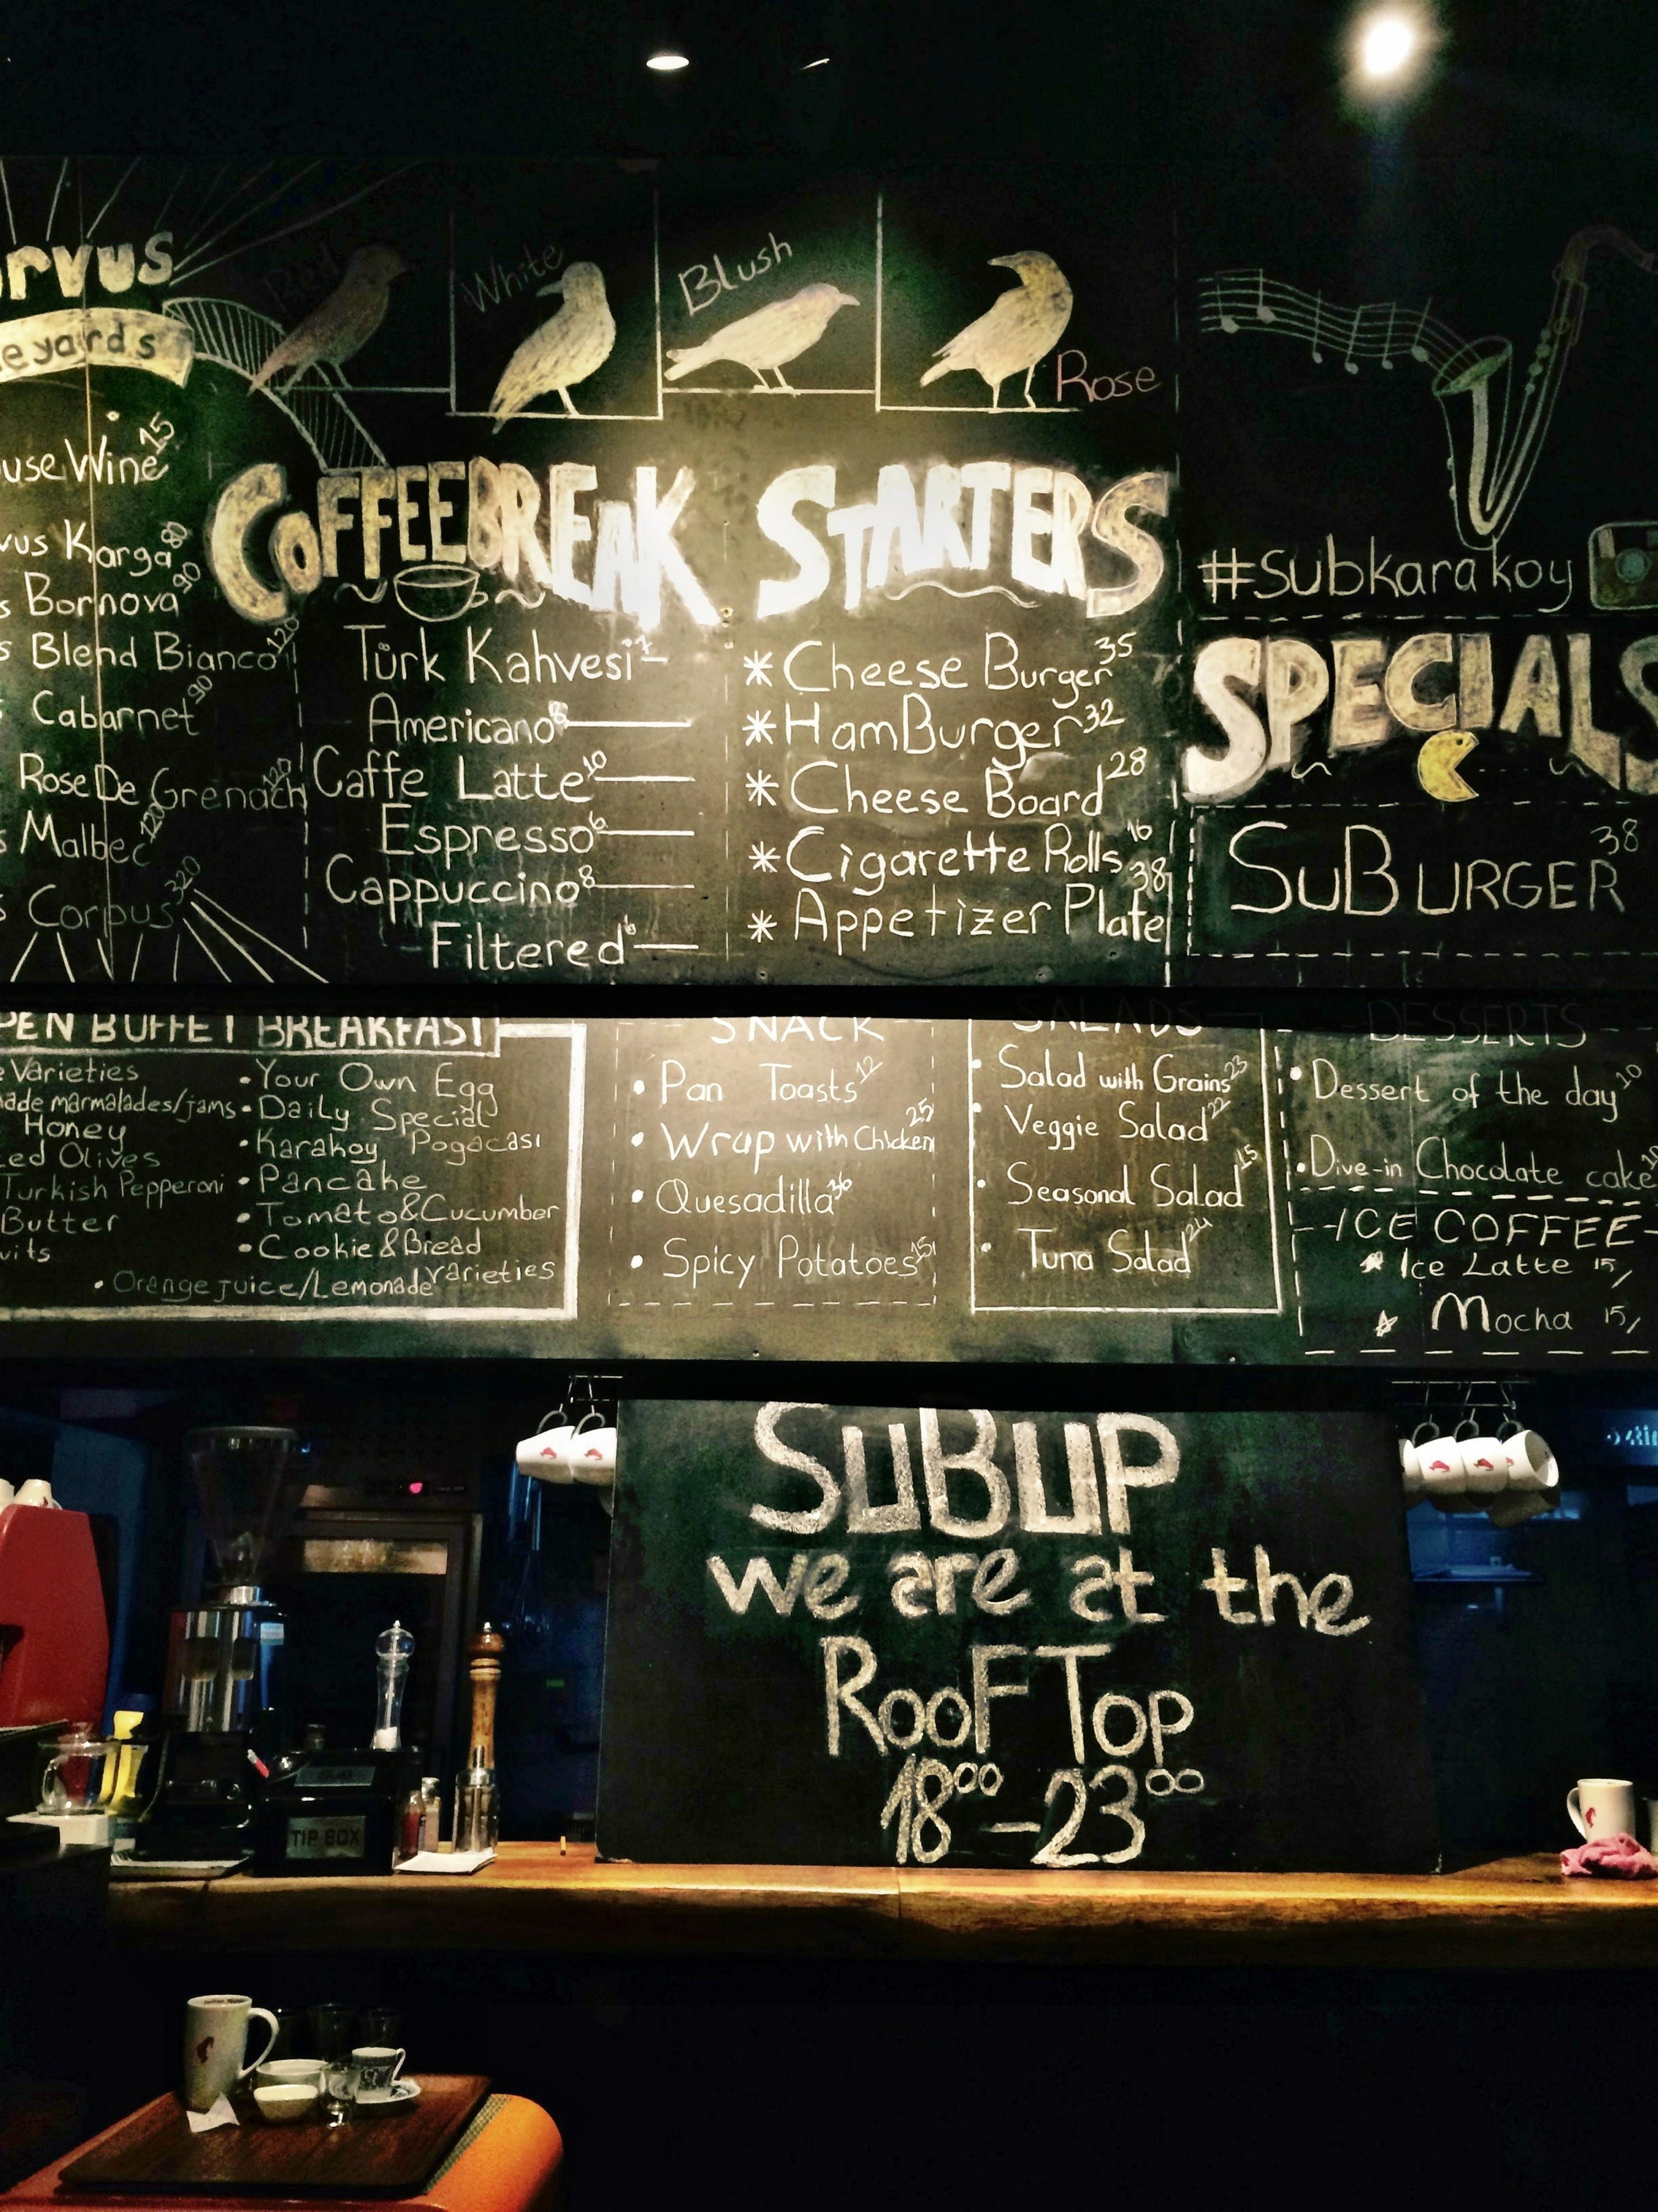 rvus
eyards
Red
White
Blush
Rose
use Wine 15
vus Karga 80
s Bornova 90
s Blend Bianco 120
Cabarnet 90
Rose De Grenach 120
s Malbec 120
s Corpus 320
COFFEEBREAK
Türk Kahvesi 7
Americano 8
Caffe Latte 10
Espresso 6
Cappuccino 8
Filtered 6
STARTERS
* Cheese Burger 35
* HamBurger 32
* Cheese Board 28
* Cigarette Rolls 16
* Appetizer Plate 38
#subkarakoy
SPECIALS
SuBURGER 38
PEN BUFFET BREAKFAST
Varieties
ade marmalades/jams
Honey
ed Olives
Turkish Pepperoni
Butter
uits
• Your Own Egg
• Daily Special
• Karakoy Pogacasi
• Pancake
• Tomato&Cucumber
• Cookie&Bread varieties
• Orange juice/Lemonade
SNACK
• Pan Toasts 12
• Wrap with Chicken 25
• Quesadilla 36
• Spicy Potatoes 15
SALADS
• Salad with Grains 23
• Veggie Salad 22
• Seasonal Salad 15
• Tuna Salad 24
DESSERTS
• Dessert of the day 10
• Dive-in Chocolate cake 10
ICE COFFEE
Ice Latte 15,
Mocha 15,
SuBuP
we are at the
RooF Top
18⁰⁰-23⁰⁰
TIP BOX